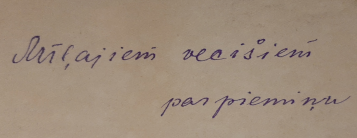 Mīļajiem vecišiem
par piemiņu